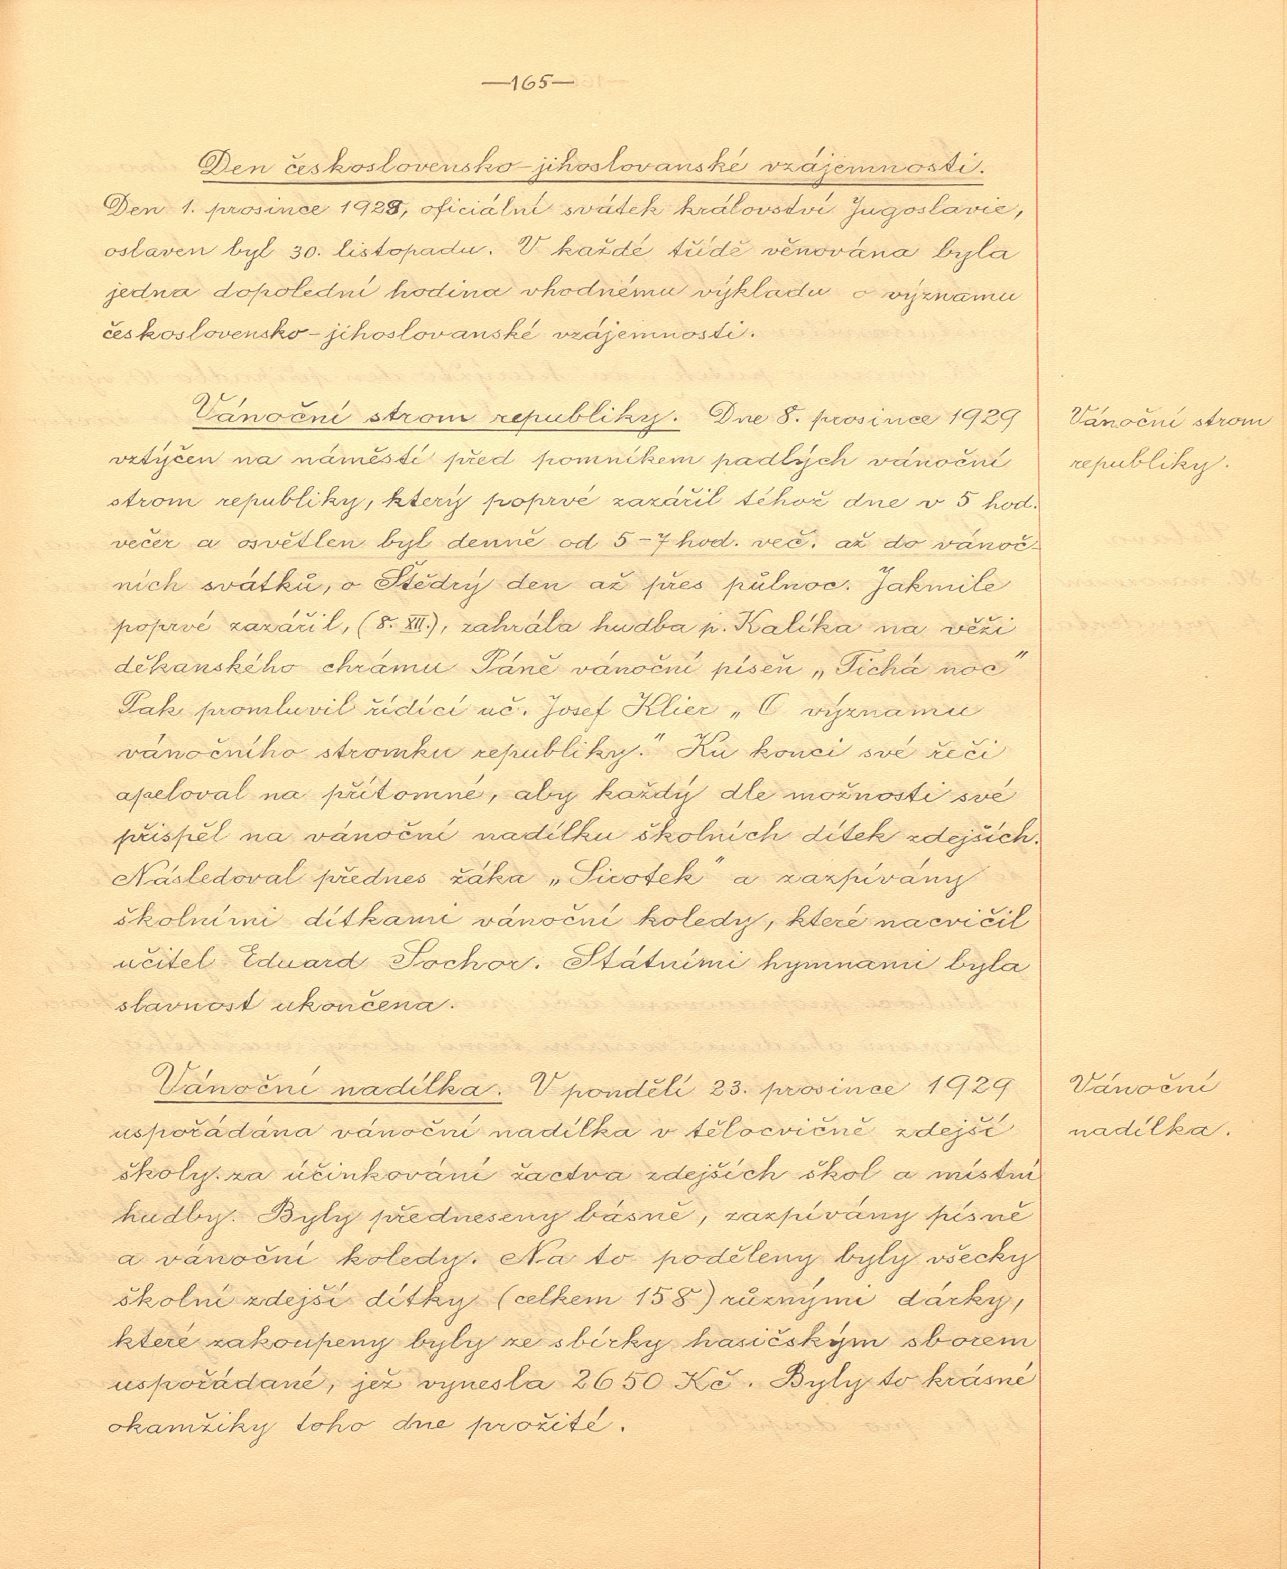 —165—
Den československo-jihoslovanské vzájemnosti.
Den 1. prosince 1929, oficiální svátek království Jugoslavie,
oslaven byl 30. listopadu. V každé třídě věnována byla
jedna dopolední hodina vhodnému výkladu o významu
československo-jihoslovanské vzájemnosti.
Vánoční strom republiky. Dne 8. prosince 1929
Vánoční strom
vztýčen na náměstí před pomníkem padlých vánoční
republiky.
strom republiky, který poprvé zazářil téhož dne v 5 hod.
večer a osvětlen byl denně od 5-7 hod. več. až do vánoč-
ních svátků, o Štědrý den až přes půlnoc. Jakmile
poprvé zazářil, (8. XII.), zahrála hudba p. Kalíka na věži
děkanského chrámu Páně vánoční píseň „Tichá noc"
Pak promluvil řídící uč. Josef Klier „O významu
vánočního stromku republiky." Ku konci své řeči
apeloval na přítomné, aby každý dle možnosti své
přispěl na vánoční nadílku školních dítek zdejších.
Následoval přednes žáka „Sirotek" a zazpívány
školními dítkami vánoční koledy, které nacvičil
učitel Eduard Sochor. Státními hymnami byla
slavnost ukončena.
Vánoční nadílka. V pondělí 23. prosince 1929
Vánoční
uspořádána vánoční nadílka v tělocvičně zdejší
nadílka.
školy. za účinkování žactva zdejších škol a místní
hudby. Byly předneseny básně, zazpívány písně
a vánoční koledy. Na to poděleny byly všecky
školní zdejší dítky (celkem 158) různými dárky,
které zakoupeny byly ze sbírky hasičským sborem
uspořádané, jež vynesla 2650 Kč. Byly to krásné
okamžiky toho dne prožité.